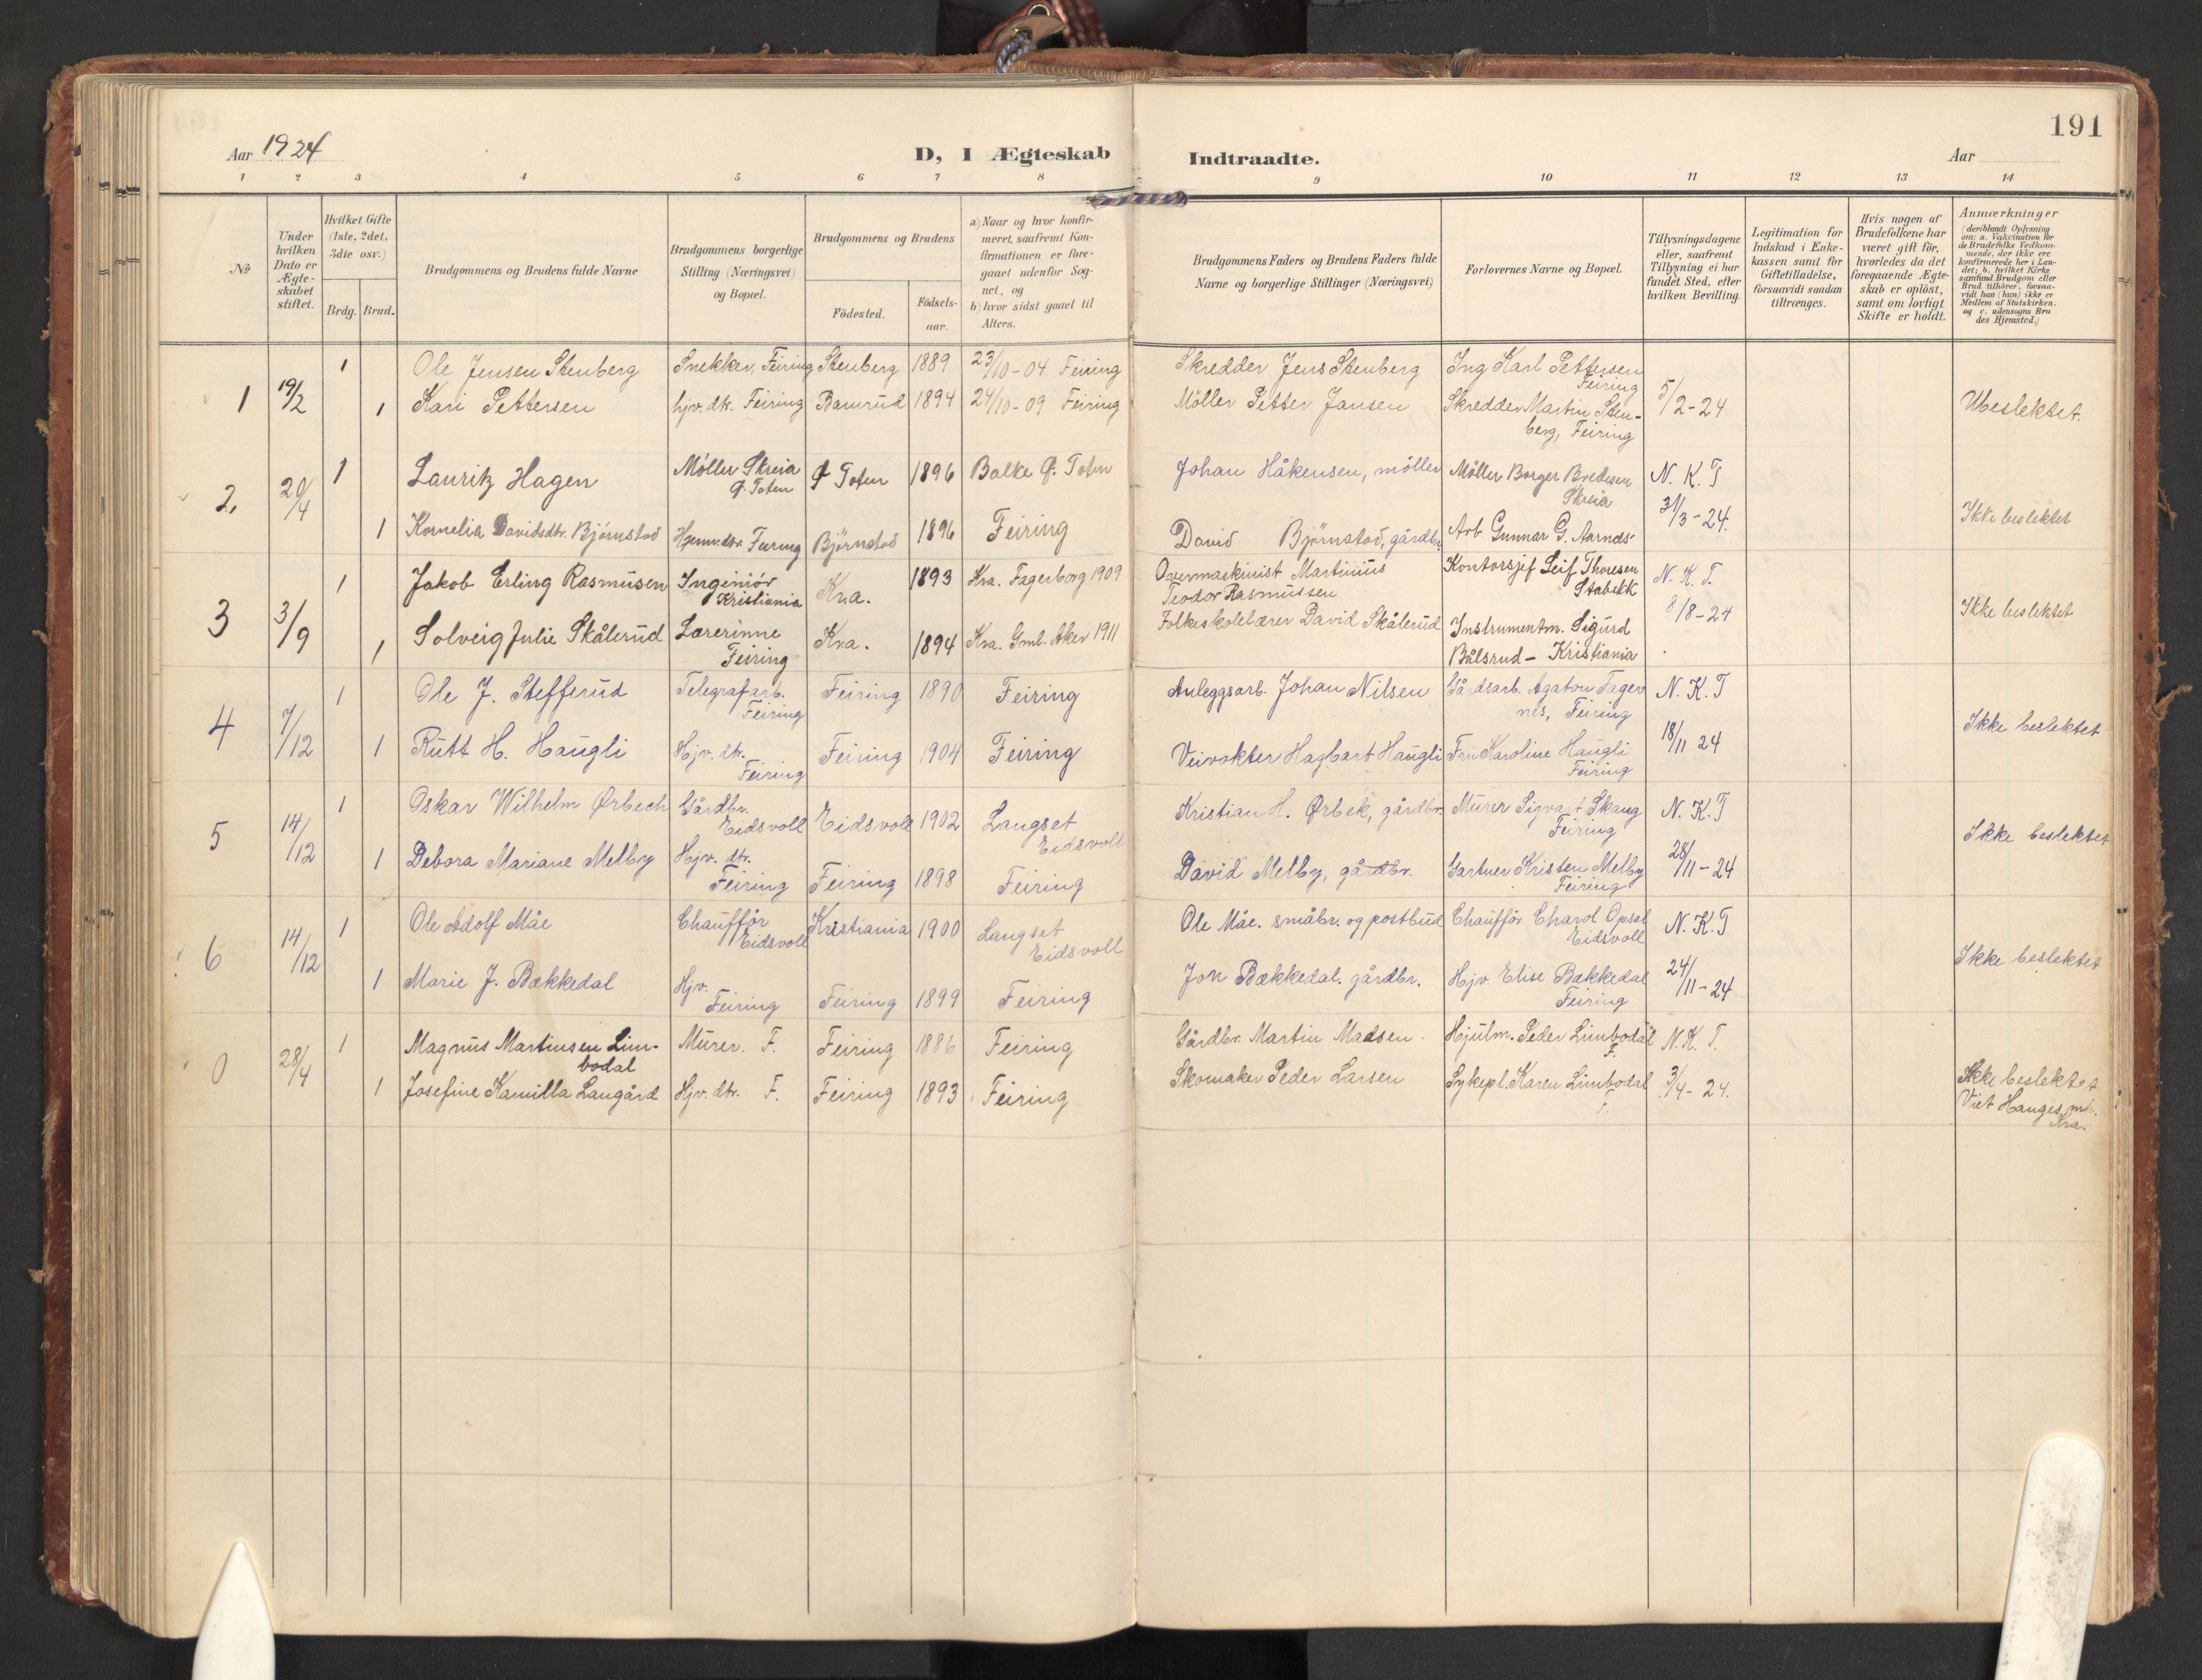 191
Aar 1924
D, I Ægteskab
Indtraadte.
Aar
1 2 3 4 5 6 7 8 9 10 11 12 13 14
No
Under
hvilken
Dato er
Ægte-
skabet
stiftet.
Hvilket Gifte
(1ste, 2det,
3die osv.)
Brdg.
Brud.
Brudgommens og Brudens fulde Navne
Brudgommens borgerlige
Stilling (Næringsvei)
og Bopæl.
Brudgommens og Brudens
Fødested.
Fødsels-
aar.
a) Naar og hvor konfir-
meret, saafremt Kon-
firmationen er fore-
gaaet udenfor Sog-
net, og
b) hvor sidst gaaet til
Alters.
Brudgommens Faders og Brudens Faders fulde
Navne og borgerlige Stillinger (Næringsvei)
Forlovernes Navne og Bopæl.
Tillysningsdagene
eller, saafremt
Tillysning ei har
fundet Sted, efter
hvilken Bevilling.
Legitimation for
Indskud i Enke-
kassen samt for
Giftetilladelse,
forsaavidt saadan
tiltrænges.
Hvis nogen af
Brudefolkene har
været gift før,
hvorledes da det
foregaaende Ægte-
skab er opløst,
samt om lovligt
Skifte er holdt.
Anmærkninger
(deriblandt Oplysning
om: a. Vakcination for
de Brudefolks Vedkom-
mende, der ikke ere
konfirmerede her i Lan-
det; b. hvilket Kirke
samfund Brudgom eller
Brud tilhører, forsaa-
vidt han (hun) ikke er
Medlem af Statskirken,
og c. udensogns Bru
des Hjemsted.)
1 19/2 1 Ole Jensen Stenberg Snekker, Feiring Stenberg 1889 23/10-04 Feiring Skredder Jens Stenberg Ing Karl Pettersen
Feiring
1 Kari Pettersen hjv. dtr. Feiring Bamrud 1894 24/10-09 Feiring Möller Petter Jansen Skredder Martin Sten-
berg, Feiring
5/2-24 Ubeslektet.
2, 20/4 1 Lauritz Hagen Möller Skreia
Ø. Toten
Ø Toten 1896 Balke Ø. Toten Johan Håkensen, möller Möller Borger Bredesen
Skreia
N. K. T
31/3-24. Ikke beslektet
1 Kornelia Davidsdtr. Björnstad Hjemv.dtr. Feiring Björnstad 1896 Feiring David Björnstad, gårdbr. Arb Gunnar G. Aarnds-
3 3/9 1 Jakob Erling Rasmusen Ingeniör
Kristiania
Kra. 1893 Kra. Fagerborg 1909 Overmaskinist Martinius
Teodor Rasmussen
Kontorsjef Leif Thoresen
Stabekk
N. K. T.
8/8-24 Ikke beslektet
1 Solveig Julie Skålerud Lærerinne
Feiring
Kra. 1894 Kra. Gml. Aker 1911 Folkeskolelærer David Skålerud Instrumentm. Sigurd
Bålsrud - Kristiania
4 7/12 1 Ole J. Stefferud Telegrafarb.
Feiring
Feiring 1890 Feiring Anleggsarb. Johan Nilsen Gårdsarb. Agaton Tager
nes, Feiring
N. K. T
18/11 24 Ikke beslektet
1 Rutt H. Haugli Hjv. dtr.
Feiring
Feiring 1904 Feiring Veivokter Hagbart Haugli Fru Karoline Haugli
Feiring
5 14/12 1 Oskar Wilhelm Ørbech Gårdbr.
Eidsvoll
Eidsvoll 1902 Langset
Eidsvoll
Kristian H. Ørbek, gårdbr. Murer Sigvart Skaug
Feiring
N. K. T
28/11-24 Ikke beslektet
1 Debora Mariane Melby Hjv. dtr.
Feiring
Feiring 1898 Feiring David Melby, gårdbr. Gartner Kristen Melby
Feiring
6 14/12 1 Ole Adolf Måe Chauffør
Eidsvoll
Kristiania 1900 Langset
Eidsvoll
Ole Måe. småbr. og postbud Chauffør Charol Opsal
Eidsvoll
N. K. T
24/11-24 Ikke beslektet
1 Marie J. Bækkedal Hjv.
Feiring
Feiring 1899 Feiring Jon Bækkedal. gårdbr. Hjv. Elise Bækkedal
Feiring
0 28/4 1 Magnus Martinsen Lim-
bodal
Murer. F. Feiring 1886 Feiring Gårdbr. Martin Madsen. Hjulm. Peder Limbodal
F.
N. K. T.
3/4-24. Ikke beslektet
Viet Hauges mh.
Kra.
1 Josefine Kamilla Langård Hjv. dtr. F. Feiring 1893 Feiring Skomaker Peder Larsen Sykepl. Karen Limbodal
F.